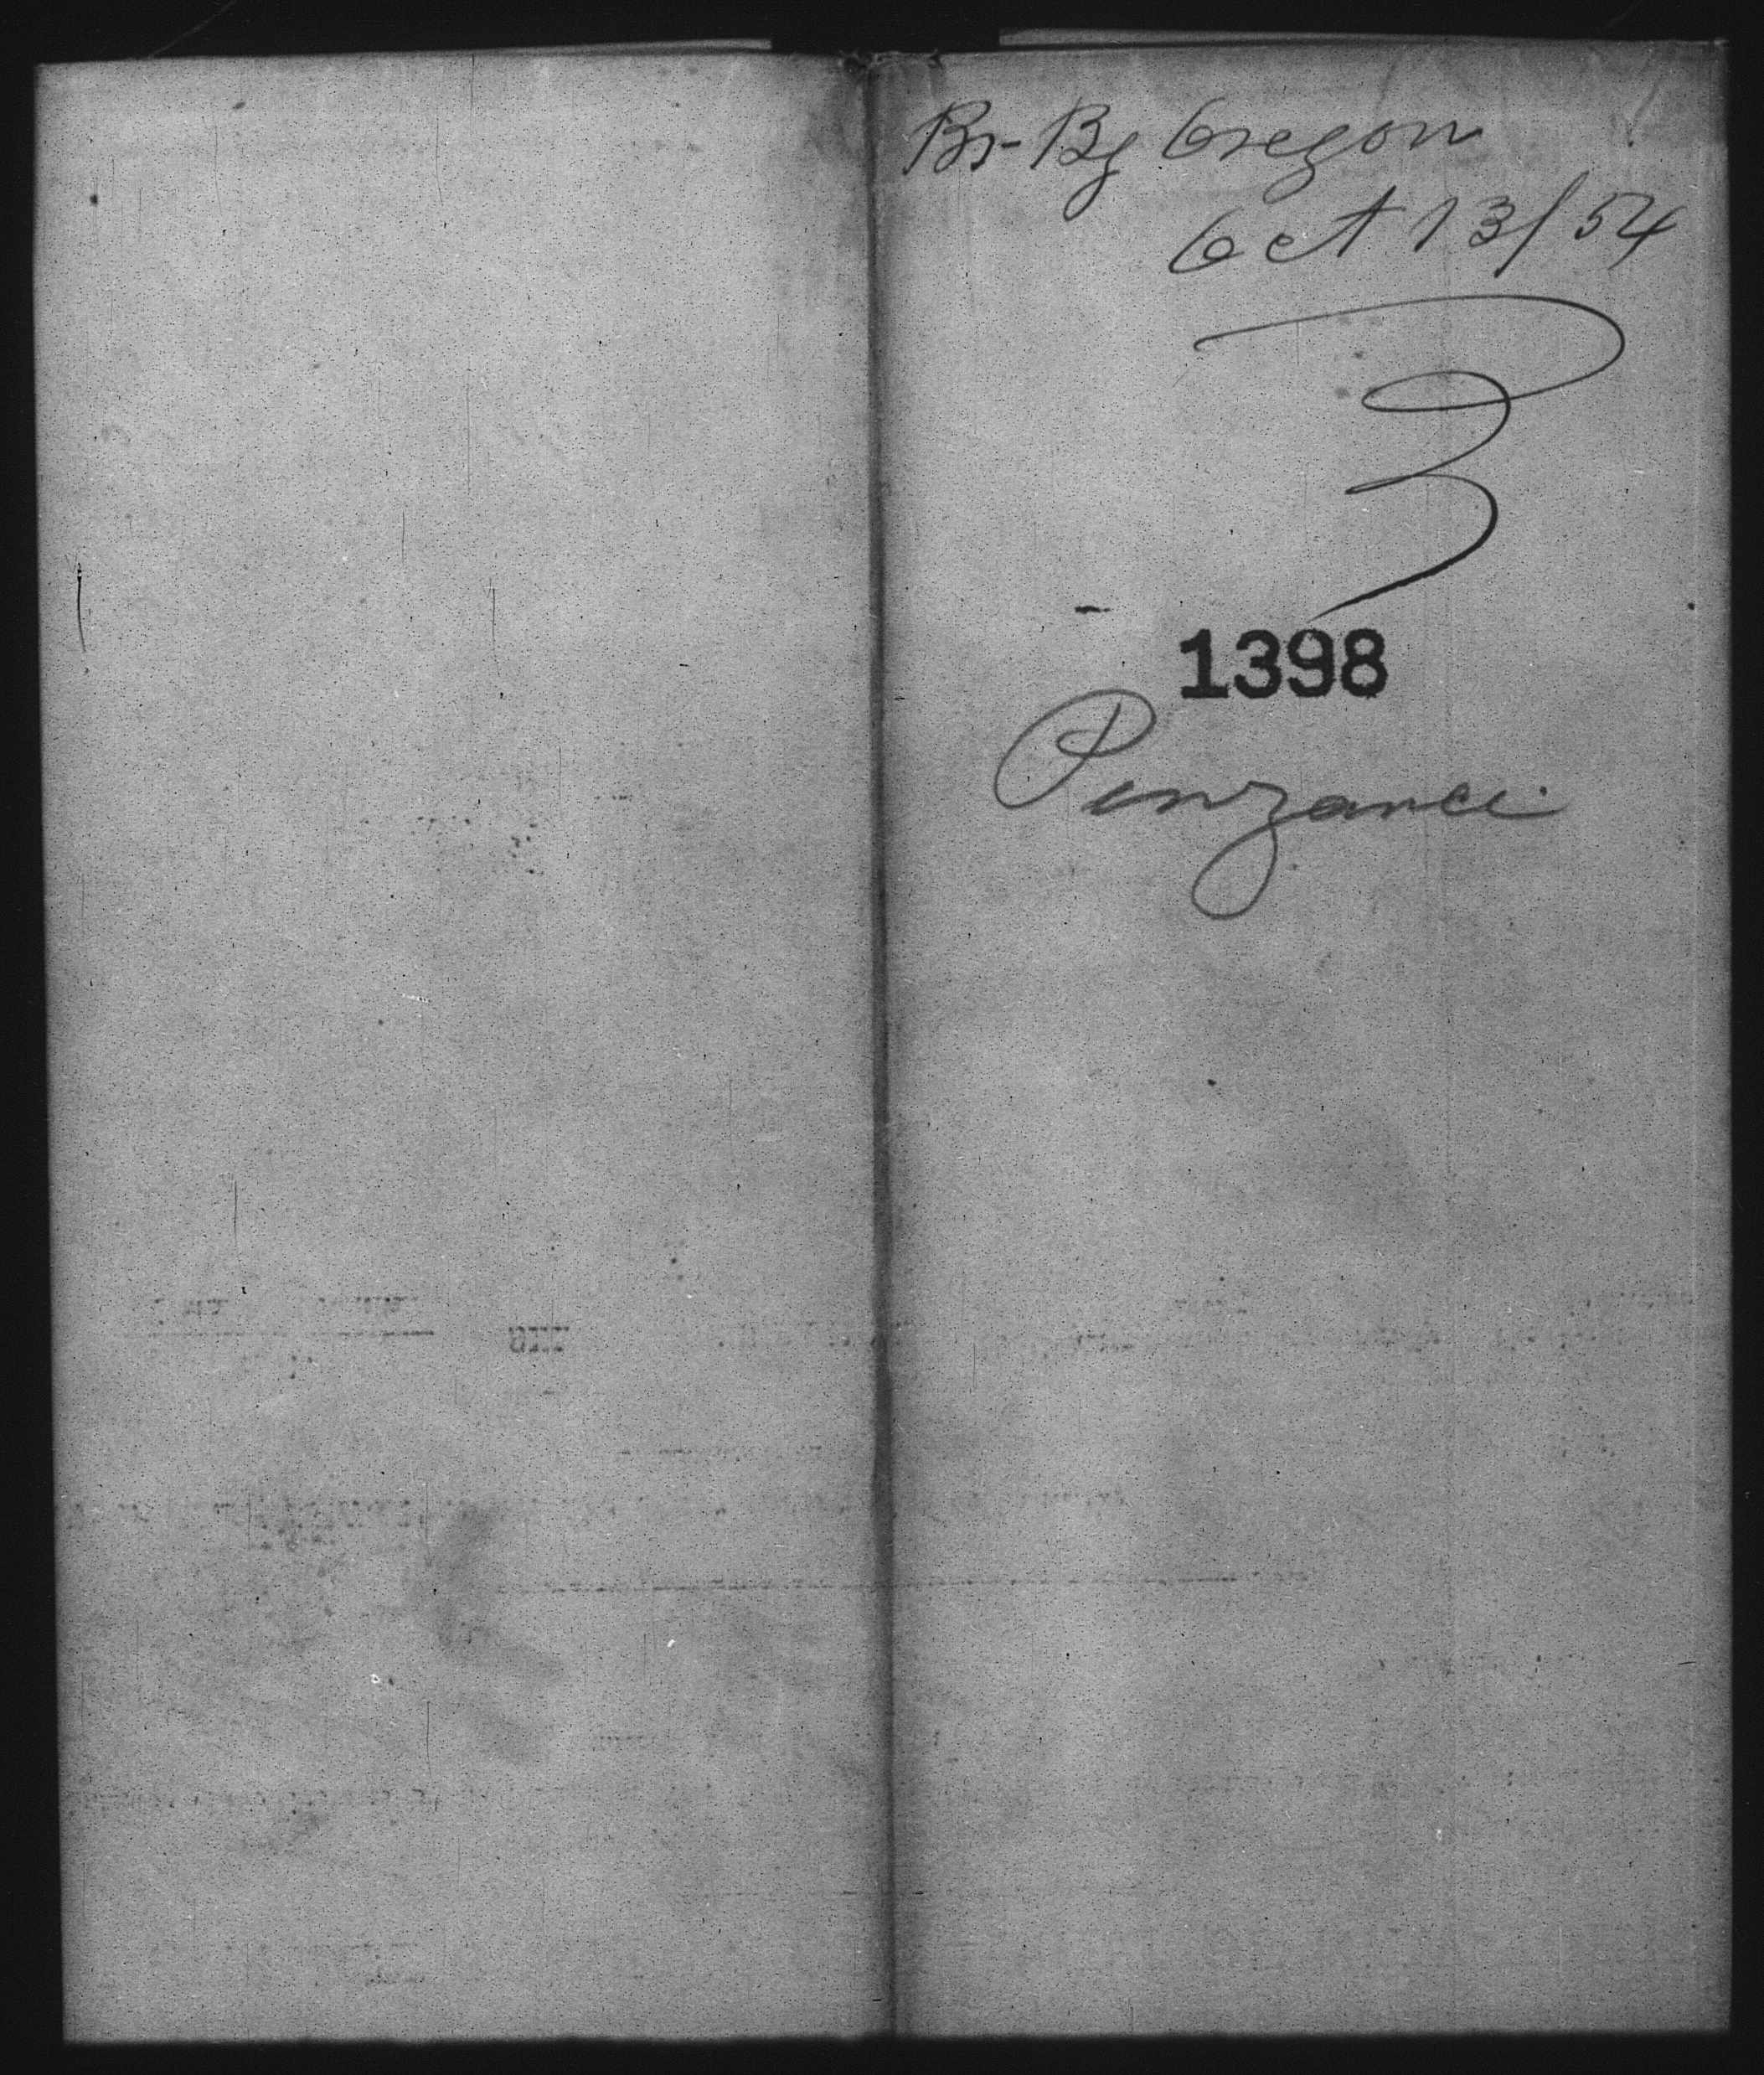 Br-Bg Oregon
Oct 13/54
1398
Penzance